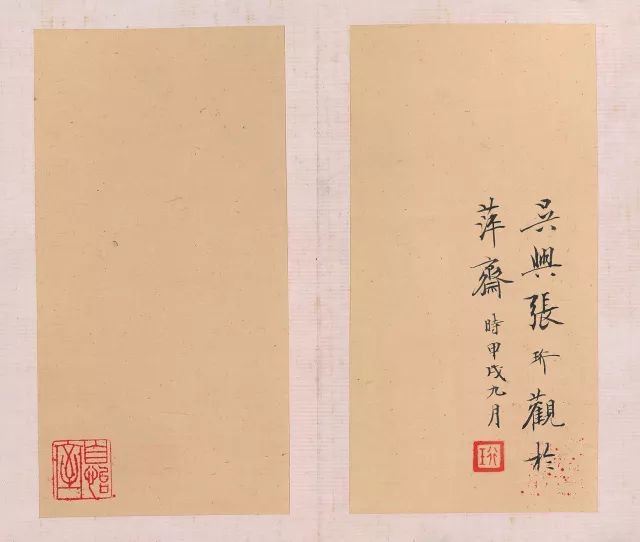 吳興張珩觀於
萍齋時甲戌九月
珩